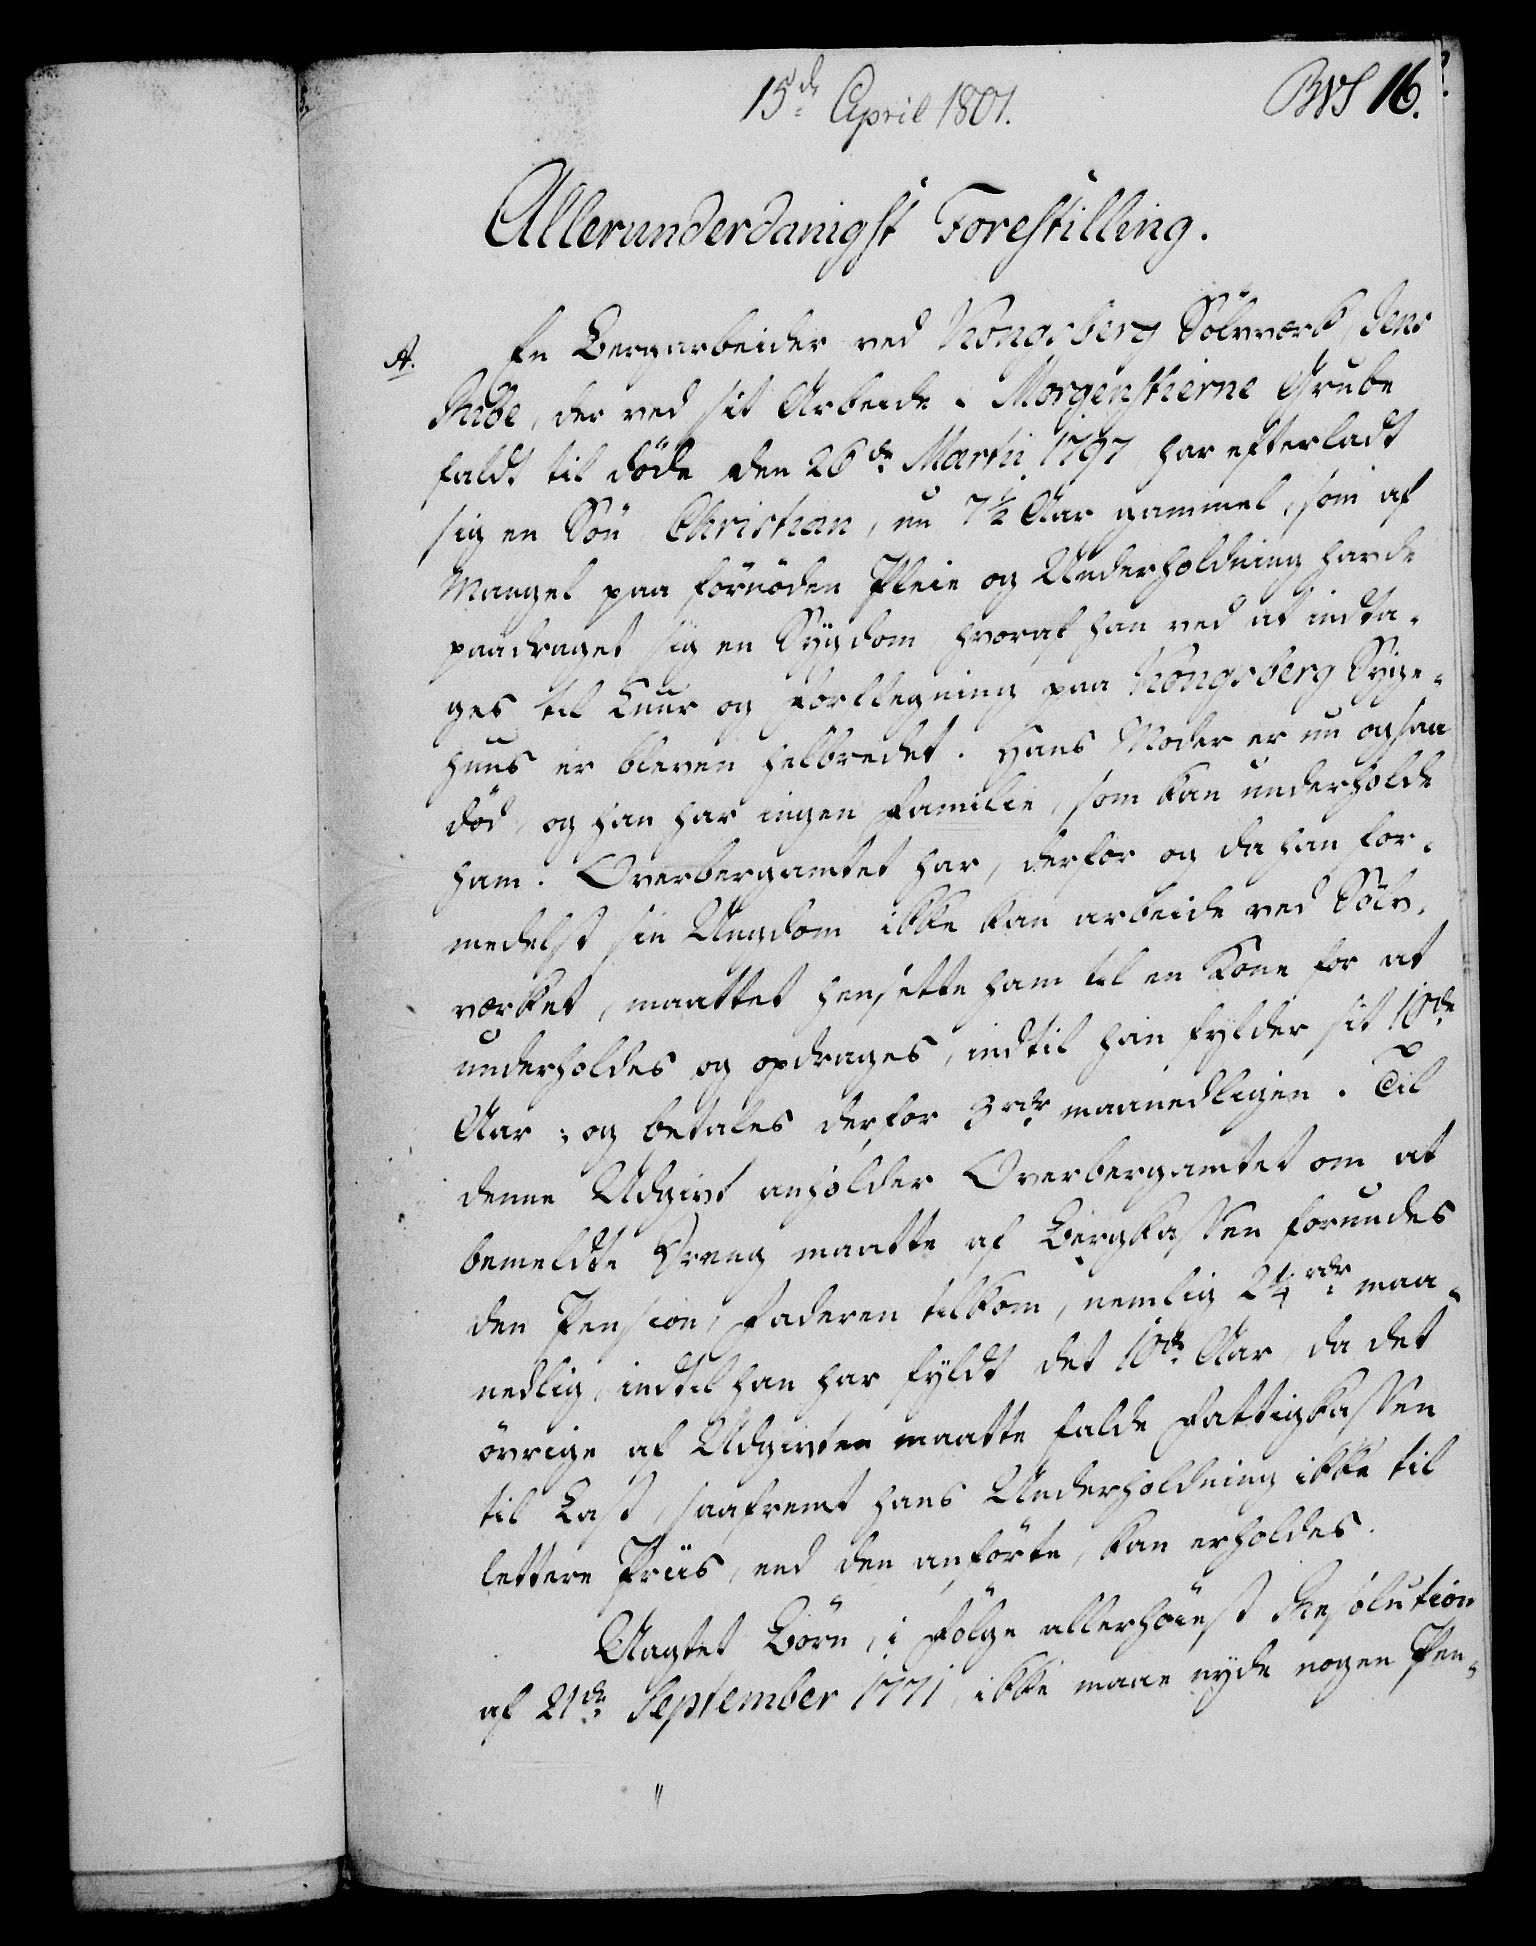 15de April 1801.
BWS 16.
Allerunderdanigst Forestilling.
A. En Bergarbeider ved Kongsberg Sölvværk, Jens
Rude, der ved sit Arbeide i Morgenstierne Grube
faldt til döde den 26de Martii 1797 har efterladt
sig en Sön Christian, nu 7½ Aar gammel, som af
Mangel paa fornöden Pleie og Underholdning havde
paadraget sig en Sygdom hvoraf han ved at indta-
ges til Cuur og Forplegning paa Kongsberg Syge-
huus er bleven helbredet. Hans Moder er nu ogsaa
död, og han har ingen Familie, som kan underholde
ham. Overbergamtet har, derfor og da han for-
medelst sin Ungdom ikke kan arbeide ved Sölv-
værket, maattet hensætte ham til en Kone for at
underholdes og opdrages, indtil han fylder sit 10de
Aar; og betales derfor 3 rdr maanedligen. Til
denne Udgivt anholder Overbergamtet om at
bemeldte Dreng maatte af Bergkassen forundes
den Pension, Faderen tilkom, nemlig 2¼ rdr maa-
nedlig, indtil han har fyldt det 10de Aar, da det
övrige af Udgivten maatte falde Fattigkassen
til Last, saafremt hans Underholdning ikke til
lettere Priis, end den anförte, kan erholdes.
Uagtet Börn, i Fölge allerhöiest Resolution
af 21de September 1771, ikke maae nyde nogen Pen-
"